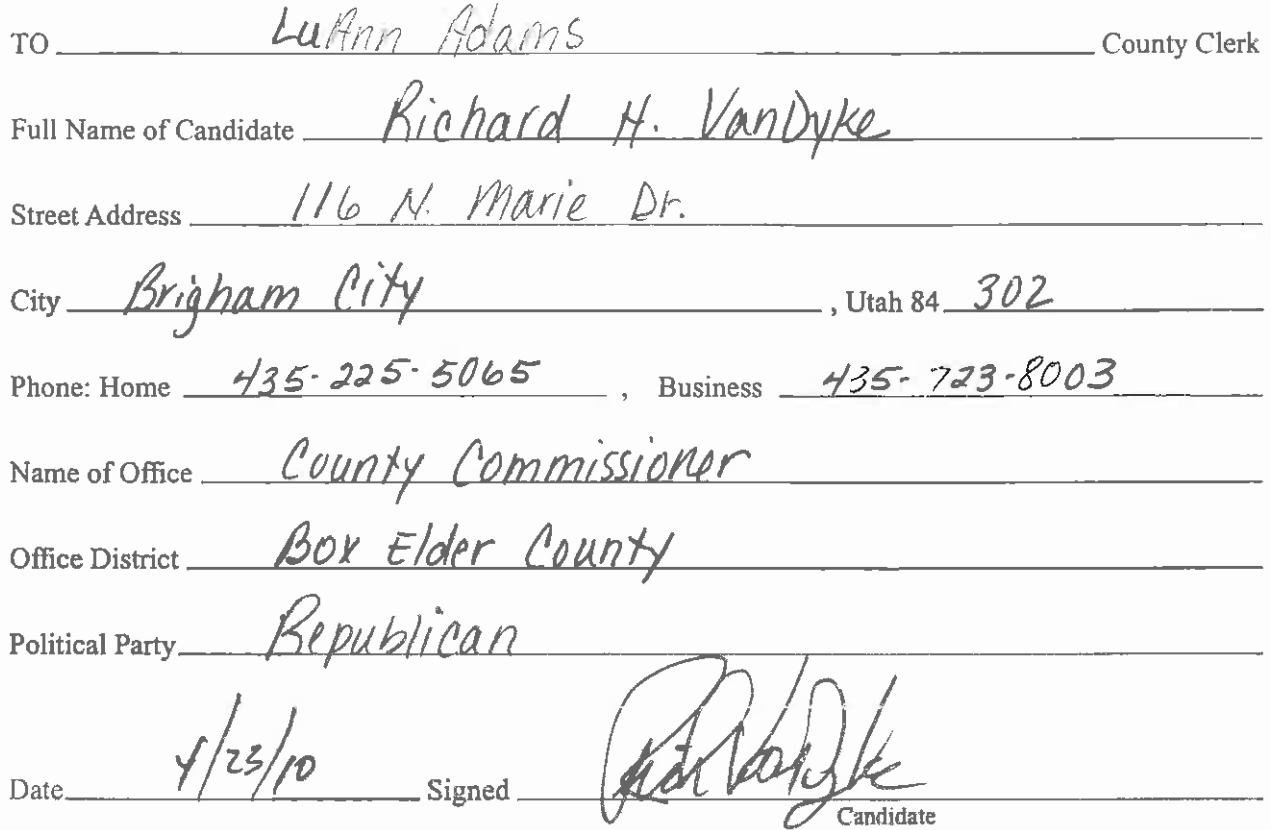 TO LuAnn Adams County Clerk
Full Name of Candidate Richard H. VanDyke
Street Address 116 N. Marie Dr.
City Brigham City , Utah 84 302
Phone: Home 435-225-5065 , Business 435-723-8003
Name of Office County Commissioner
Office District Box Elder County
Political Party Republican
Date 4/23/10 Signed Rich VanDyke
Candidate